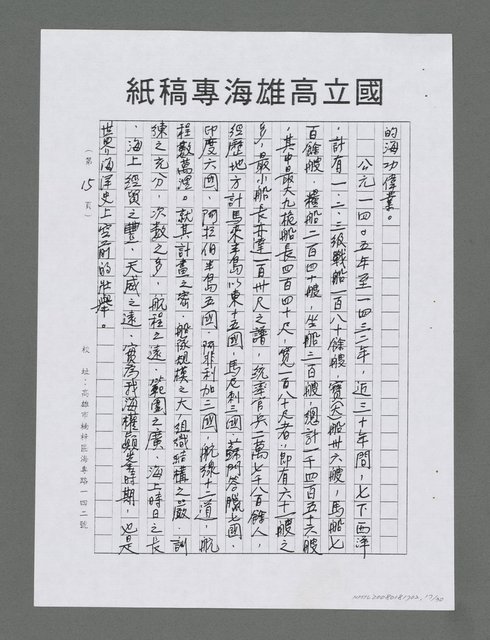 國立高雄海專稿紙
的海功偉業。
公元一四〇五年至一四三二年，近三十年間，七下西洋
，計有一、二、三級戰船一百八十餘艘，寶船卅六艘，馬船七
百餘艘，糧船二百四十艘，坐船三百艘，總計一千四百五十六艘
，其中最大九桅船長四百四十尺，寬一百八十尺者，即有六十二艘之
多，最小船長亦達一百卅尺之譜，統率官兵二萬七千八百餘人，
經歷地方計馬來半島以東十五國，馬尼剌三國，蘇門答臘七國，
印度六國，阿拉伯半島五國，阿非利加三國，航線十二道，航
程數萬浬。就其計畫之密，船隊規模之大，組織結構之嚴，訓
練之充分，次數之多，航程之遠，範圍之廣，海上時日之長
，海上經貿之豐，天威之遠，實為我海權顛峯時期，也是
世界海洋史上空前的壯舉。
（第15頁）
校址：高雄市楠梓區海專路一四二號
NMTL20080181702, 17/20